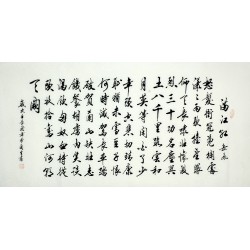 满江红 岳飞
怒髮衝冠凭欄處
瀟瀟雨歇抬望眼
仰天長嘯壯懷激
烈三十功名塵與
土八千里路雲和
月莫等閒白了少
年頭空悲切靖康
恥猶未雪臣子恨
何時滅駕長車踏
破賀蘭山缺壯志
飢餐胡虜肉笑談
渴飲匈奴血待從
頭收拾舊山河朝
天闕